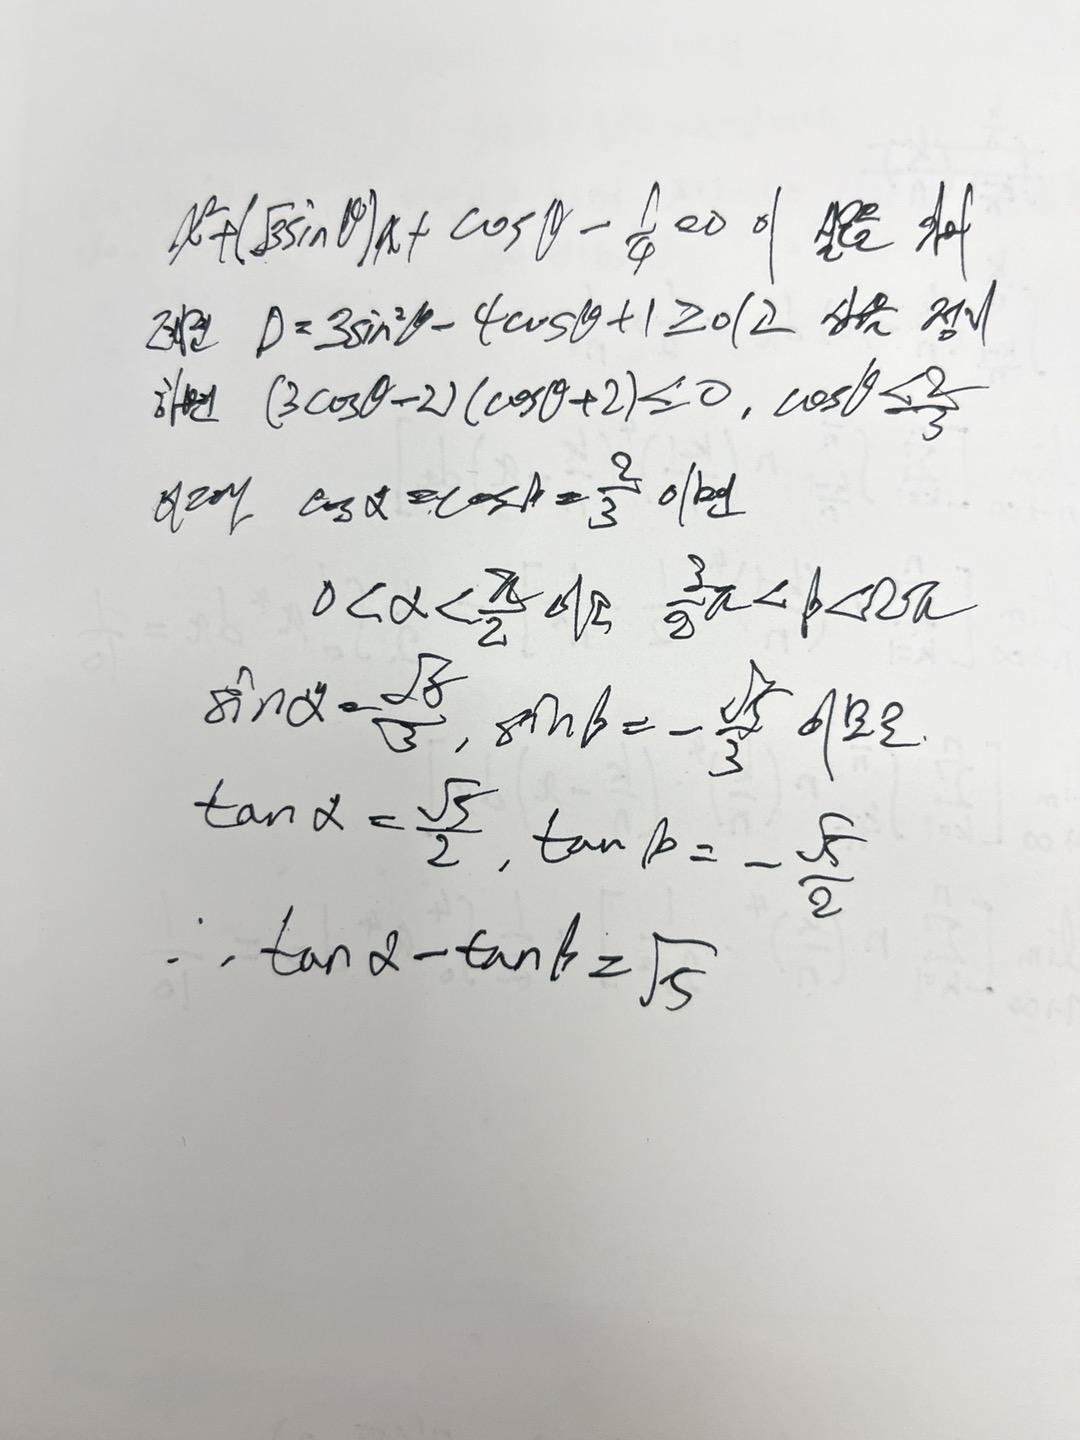 x²+(√3sinθ)x+cosθ-1/4=0 이 실근을 가
려면 D=3sin²θ-4cosθ+1≥0(2 식을 정리
하면 (3cosθ-2)(cosθ+2)≤0, cosθ≤2/3
따라서 cosα=cosβ=2/3 이면
0<α<π/2 이고 3/2π<β<2π
sinα=√5/3, sinβ=-√5/3 이므로
tanα=√5/2, tanβ=-√5/2
∴ tanα-tanβ=√5